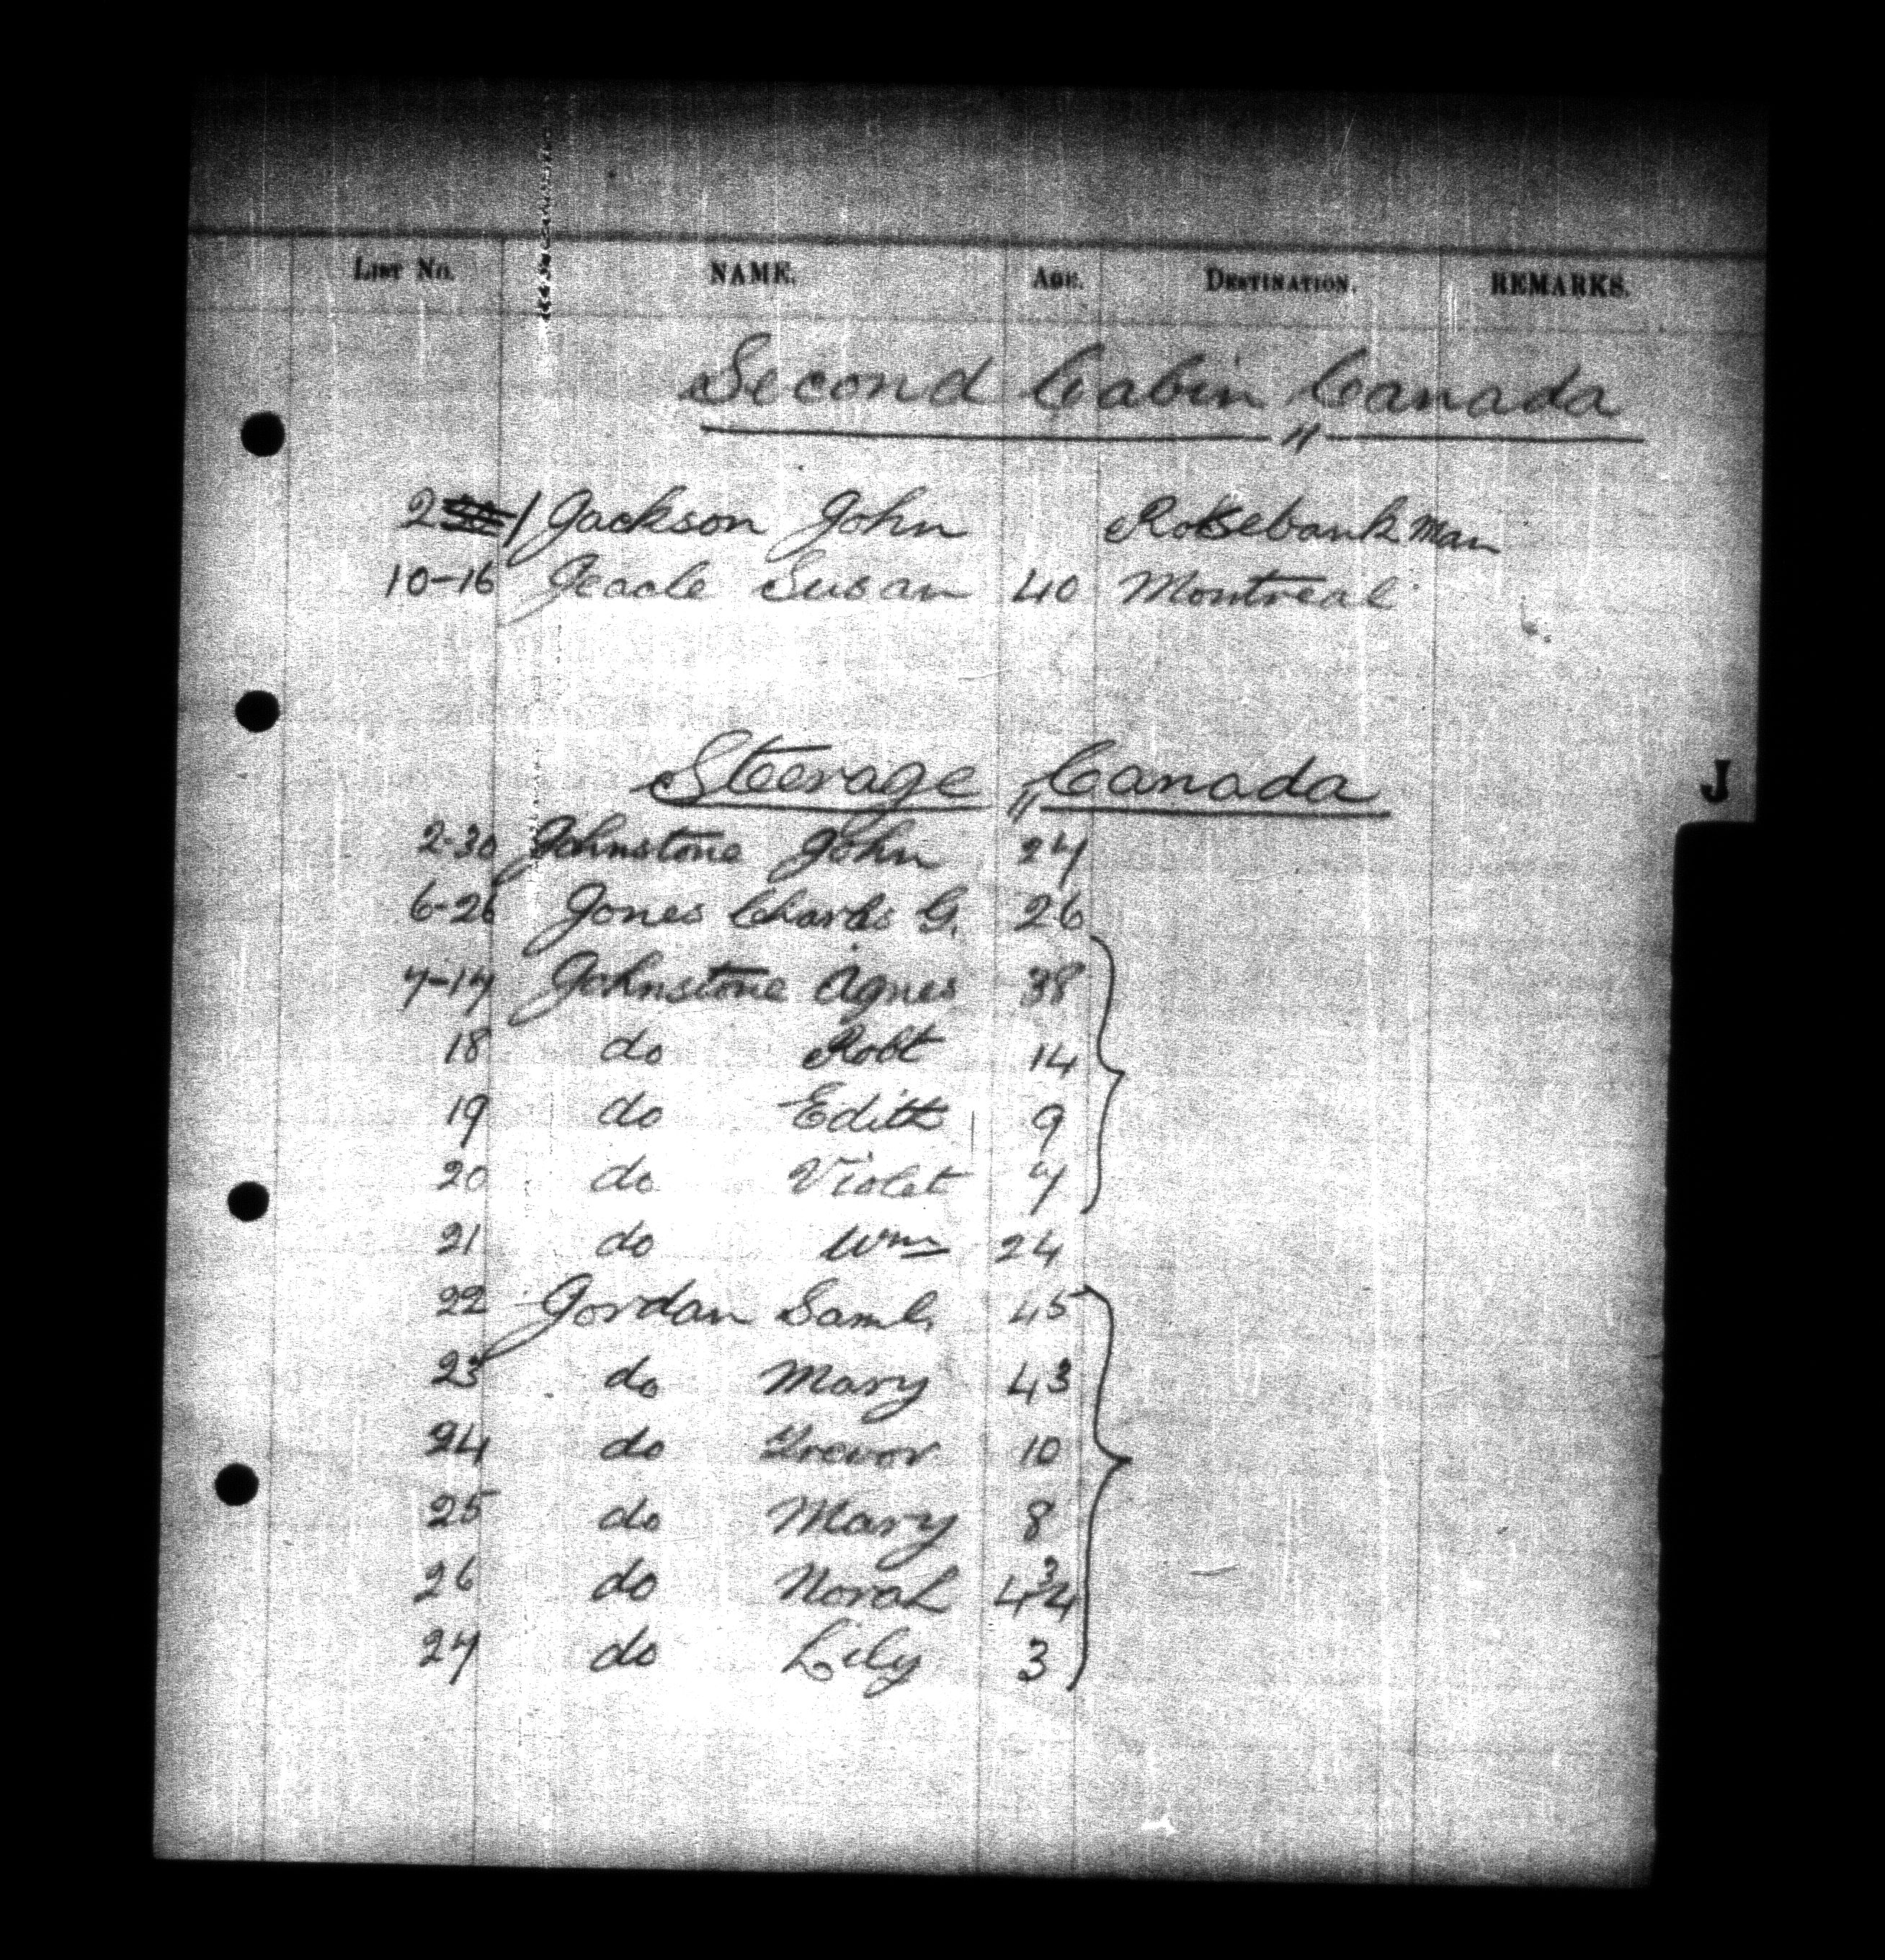 LIST No. NAME. AGE. DESTINATION. REMARKS.
Second Cabin Canada
2 /1 Jackson John Rosebank Man
10-16 Jeacle Susan 40 Montreal
Steerage Canada
J
2-30 Johnstone John 27
6-26 Jones Charles G. 26
7-17 Johnstone Agnes 38
18 do Robt 14
19 do Edith 9
20 do Violet 7
21 do Wm 24
22 Jordan Saml. 45
23 do Mary 43
24 do Trevor 10
25 do Mary 8
26 do Norah 4 3/4
27 do Lily 3